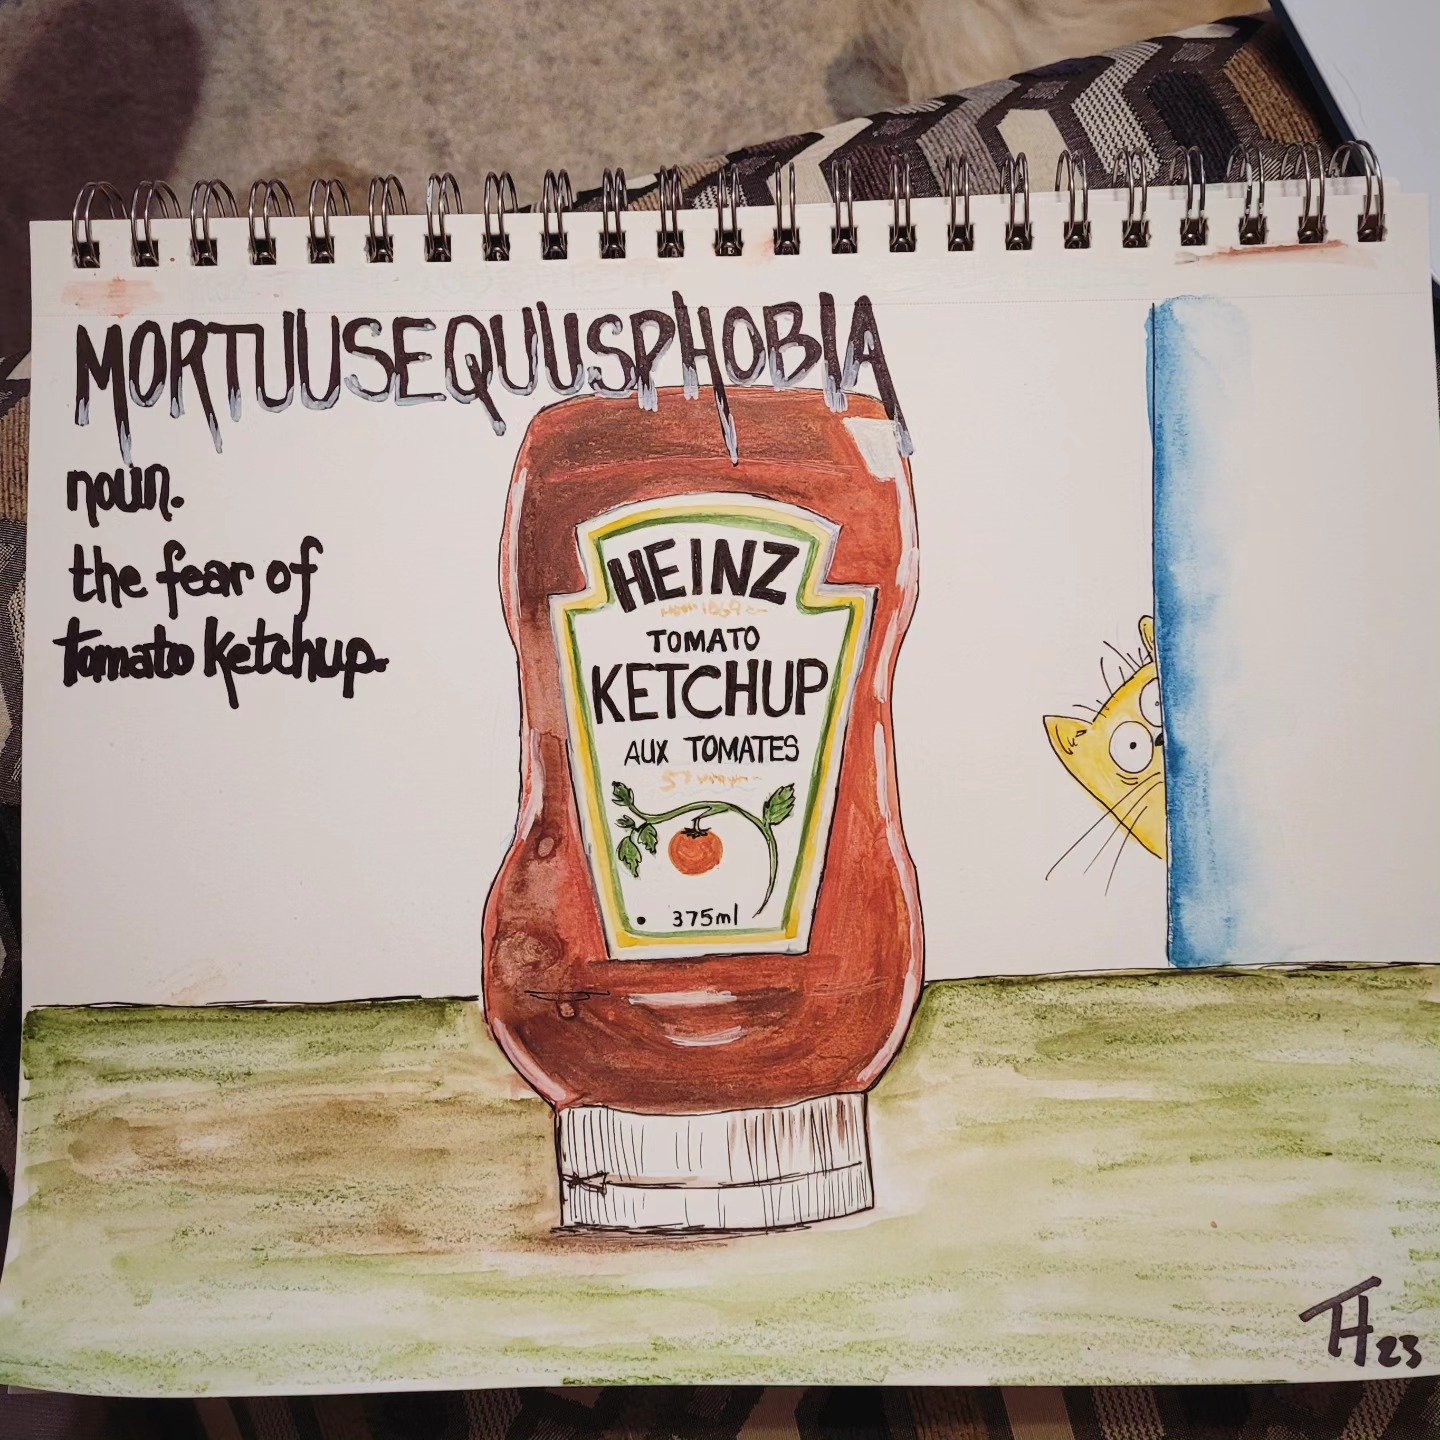 MORTUUSEQUUSPHOBIA
noun.
the fear of
tomato ketchup.
HEINZ
TOMATO
KETCHUP
AUX TOMATES
375ml
TH 23